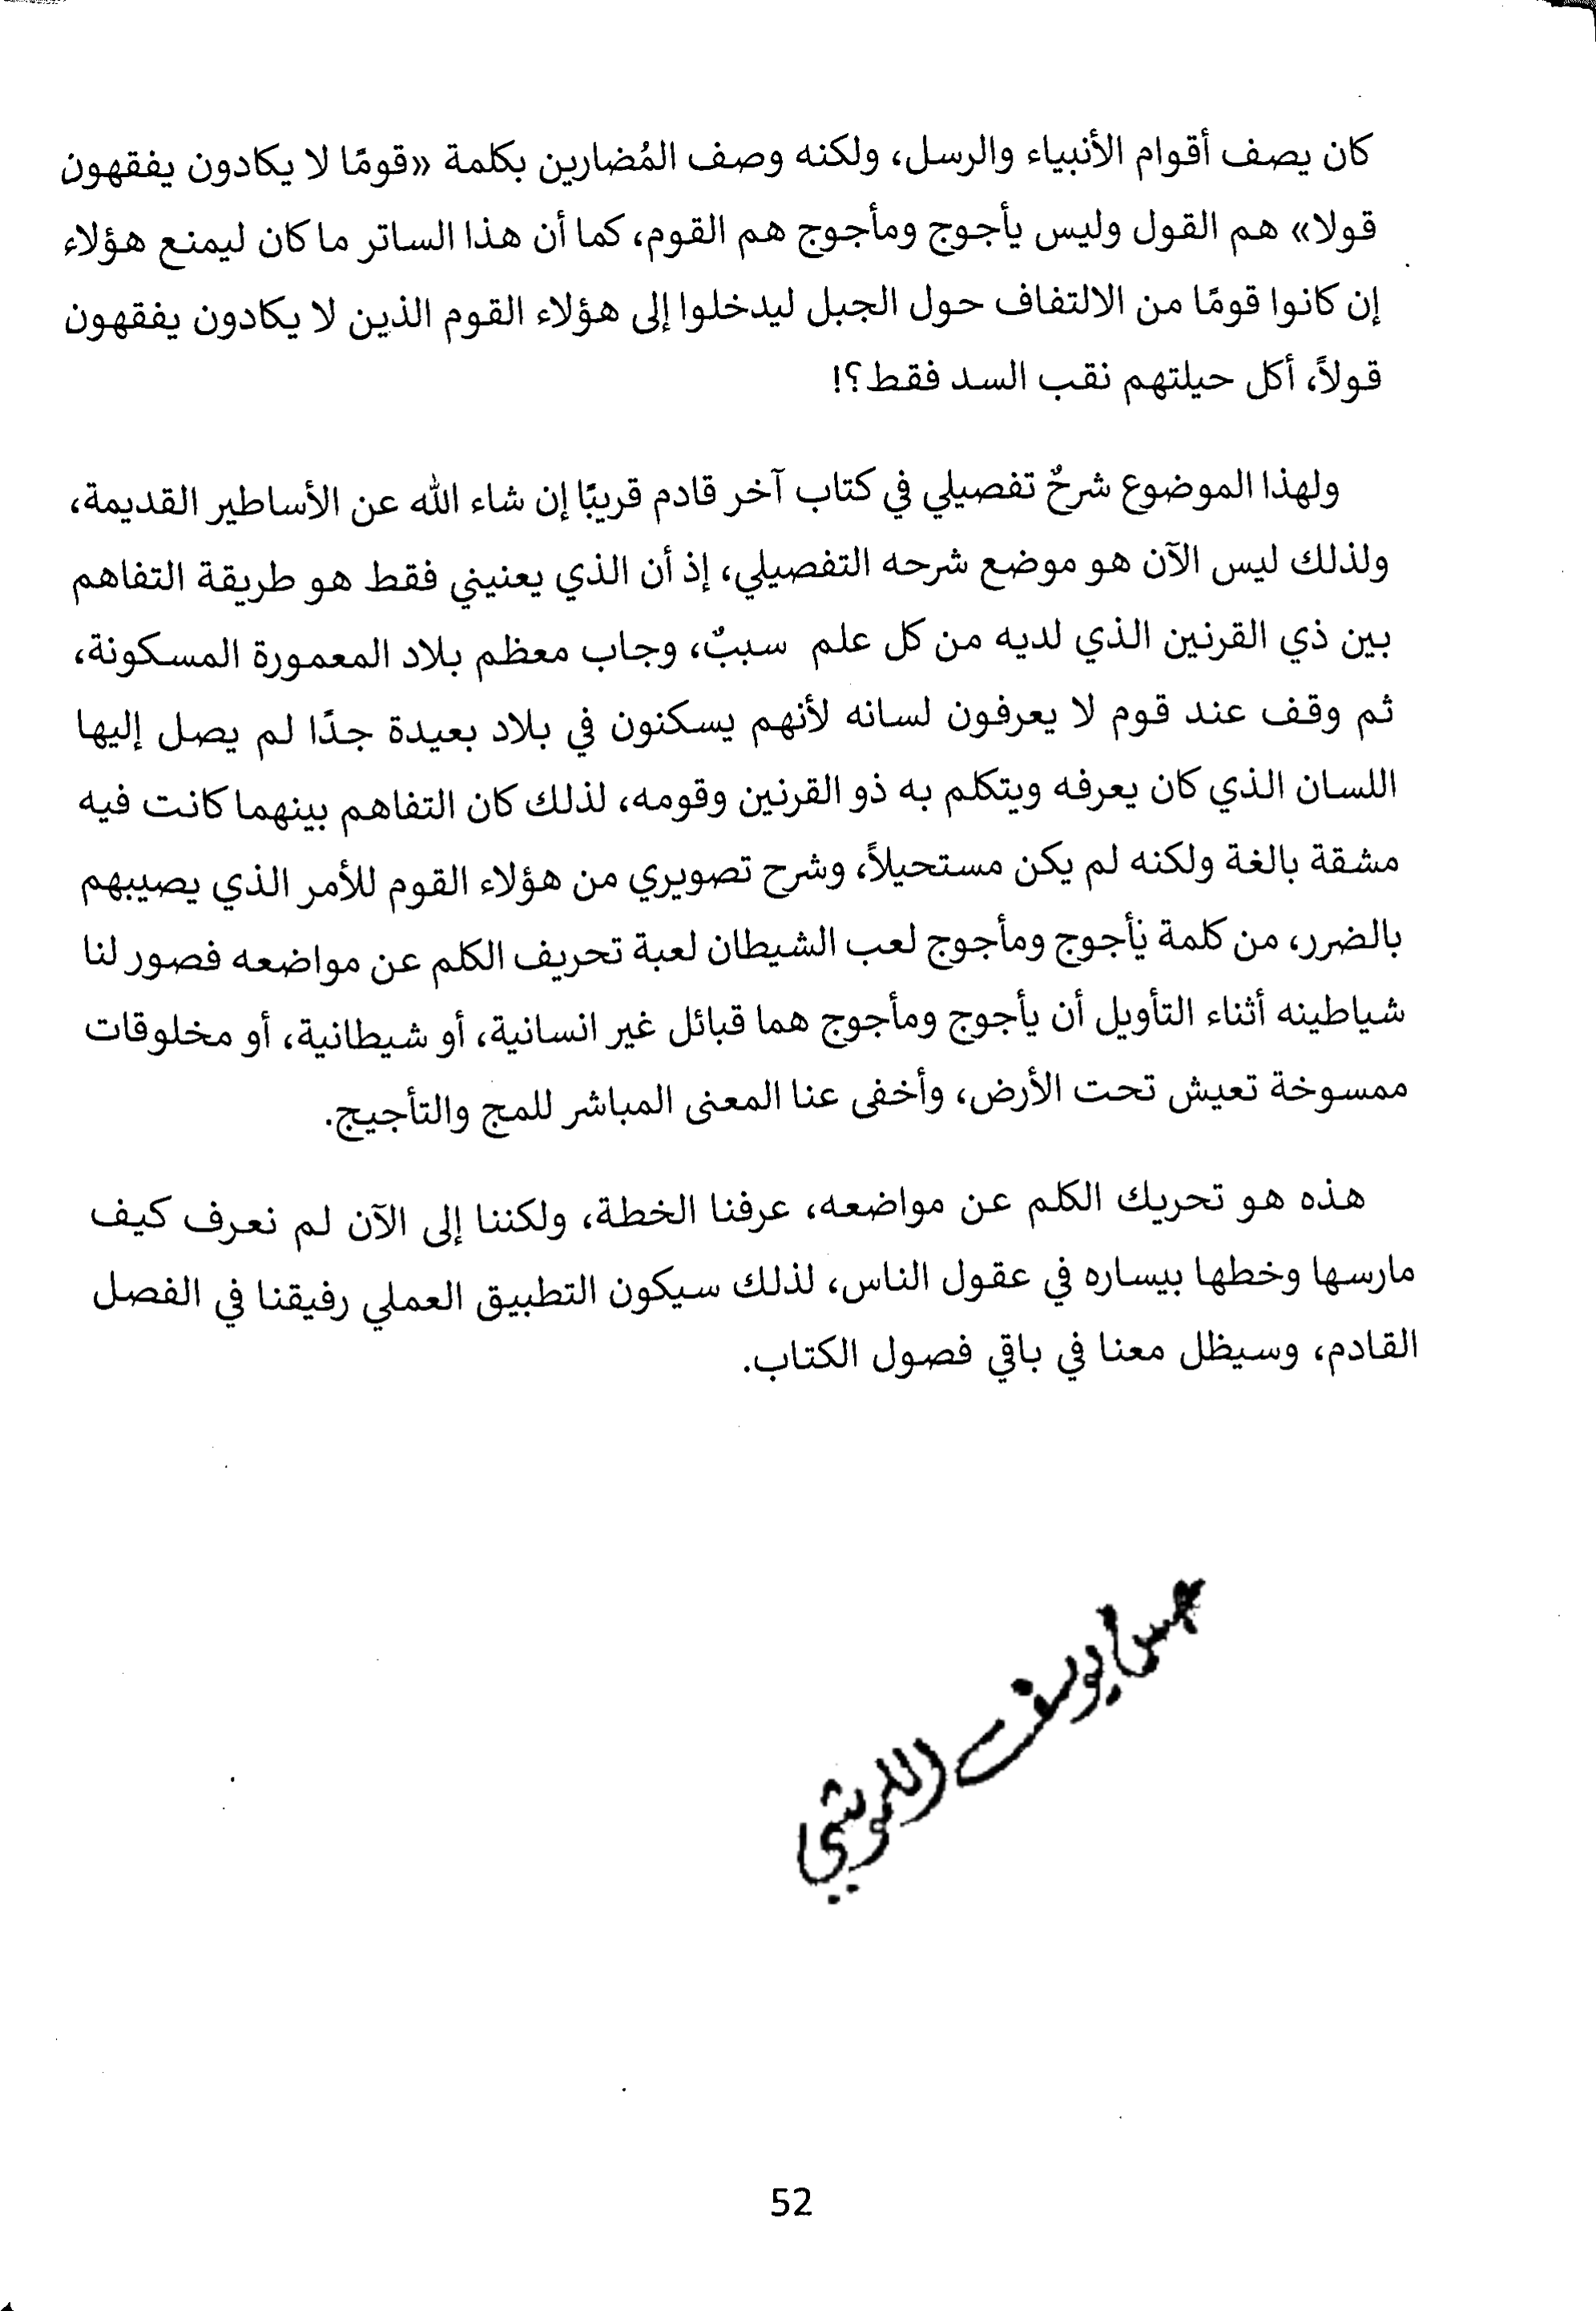 كان يصف أقوام الأنبياء والرسل، ولكنه وصف المُضارين بكلمة «قومًا لا يكادون يفقهون
قولا» هم القول وليس يأجوج ومأجوج هم القوم، كما أن هذا الساتر ما كان ليمنع هؤلاء
إن كانوا قومًا من الالتفاف حول الجبل ليدخلوا إلى هؤلاء القوم الذين لا يكادون يفقهون
قولاً، أكل حيلتهم نقب السد فقط؟!
ولهذا الموضوع شرحٌ تفصيلي في كتاب آخر قادم قريبًا إن شاء الله عن الأساطير القديمة،
ولذلك ليس الآن هو موضع شرحه التفصيلي، إذ أن الذي يعنيني فقط هو طريقة التفاهم
بين ذي القرنين الذي لديه من كل علم سببٌ، وجاب معظم بلاد المعمورة المسكونة،
ثم وقف عند قوم لا يعرفون لسانه لأنهم يسكنون في بلاد بعيدة جدًا لم يصل إليها
اللسان الذي كان يعرفه ويتكلم به ذو القرنين وقومه، لذلك كان التفاهم بينهما كانت فيه
مشقة بالغة ولكنه لم يكن مستحيلاً، وشرح تصويري من هؤلاء القوم للأمر الذي يصيبهم
بالضرر، من كلمة يأجوج ومأجوج لعب الشيطان لعبة تحريف الكلم عن مواضعه فصور لنا
شياطينه أثناء التأويل أن يأجوج ومأجوج هما قبائل غير انسانية، أو شيطانية، أو مخلوقات
ممسوخة تعيش تحت الأرض، وأخفى عنا المعنى المباشر للمج والتأجيج.
هذه هو تحريك الكلم عن مواضعه، عرفنا الخطة، ولكننا إلى الآن لم نعرف كيف
مارسها وخطها بيساره في عقول الناس، لذلك سيكون التطبيق العملي رفيقنا في الفصل
القادم، وسيظل معنا في باقي فصول الكتاب.
يوسف
52